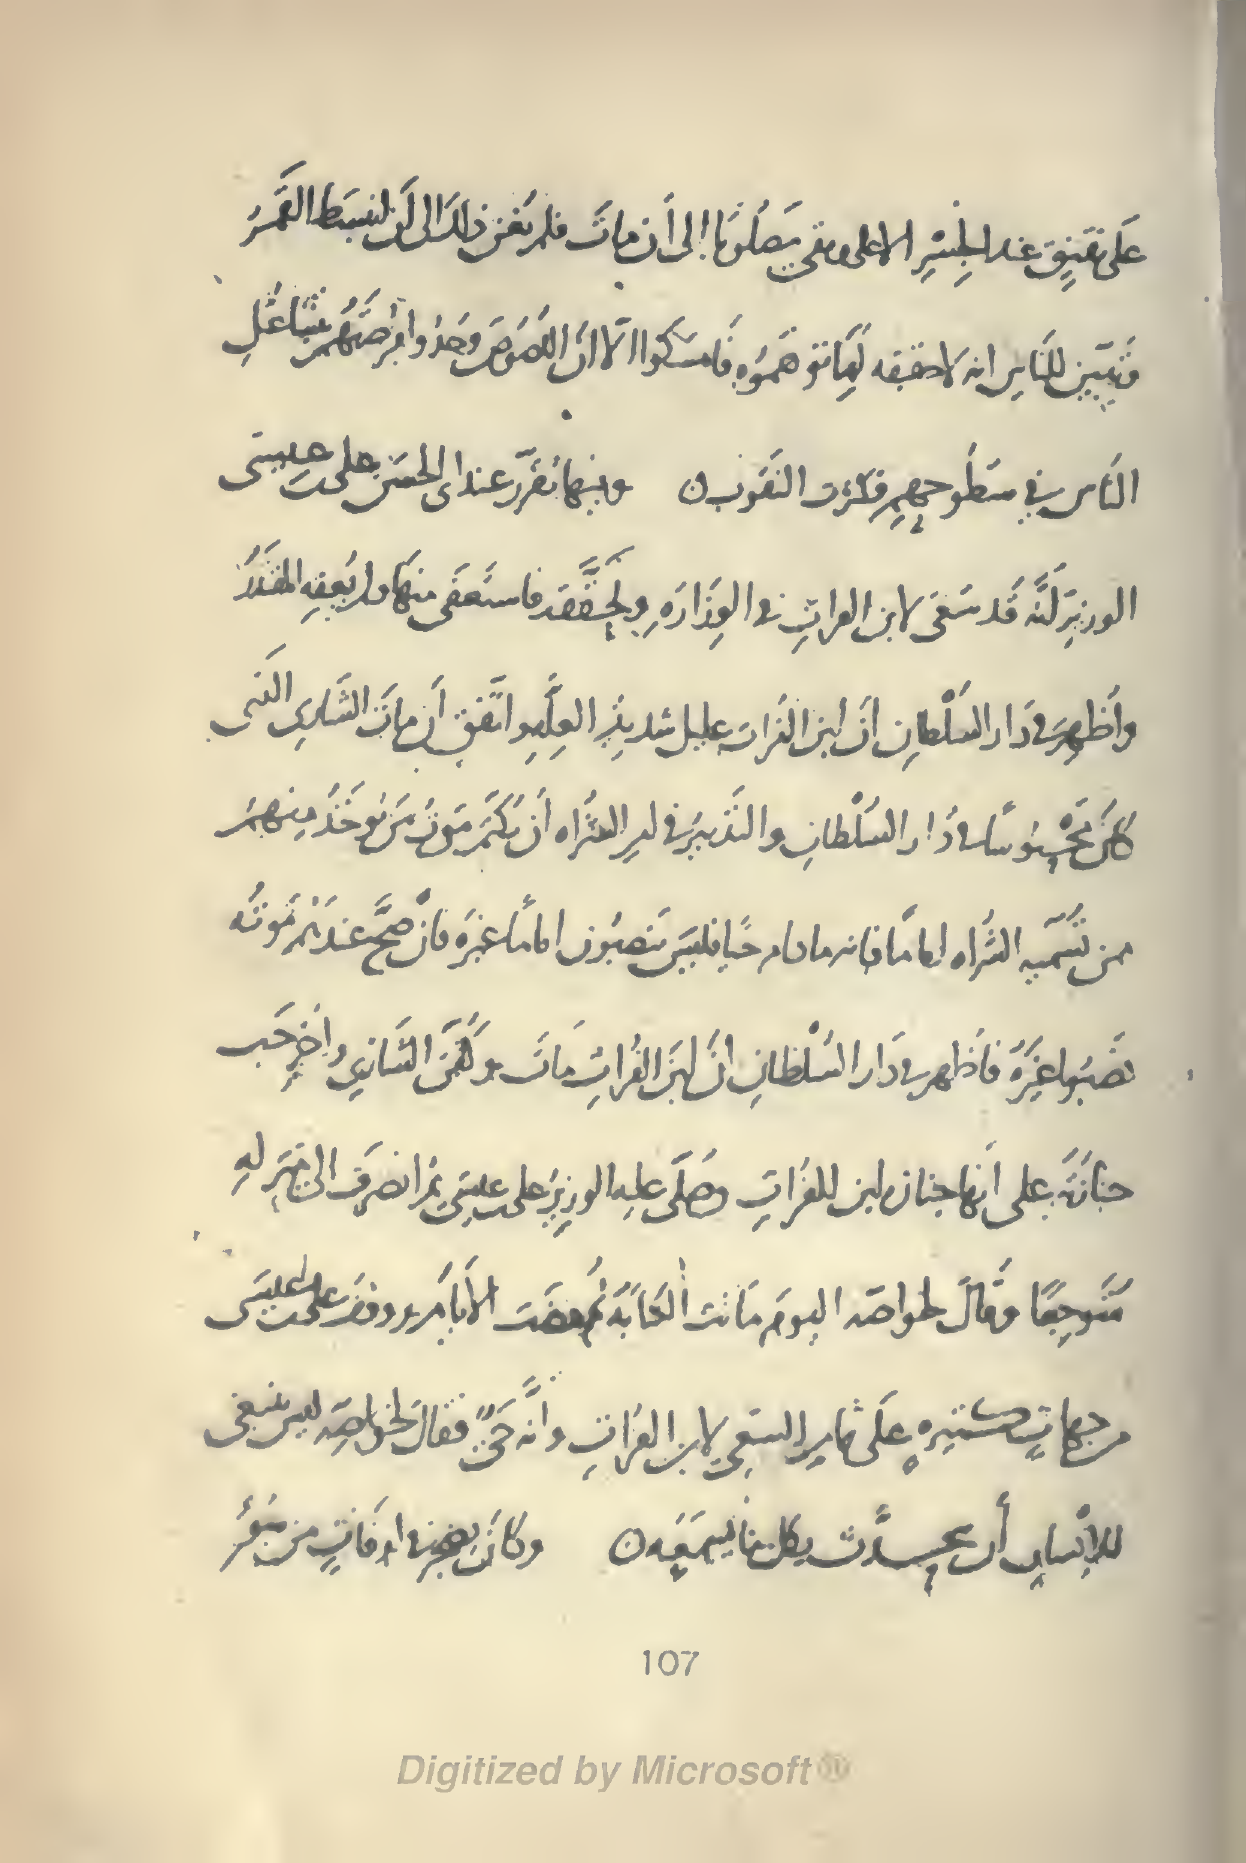 عَلى نقنق عند الجِسْرِ الاعلى وبقى مَصْلُوبًا إلى أن ماتَ فلم يُغن ذلك الى أن انبسَط القمَرُ
فتبيّن للنَاسِ انه لا حقيقه لِمَا توهَمُوه فَامسَكوا الّا انّ اللصُوصَ وجَدُوا فرصَتَهُم بتشاغُلِ
النّاس في سطُوحهِم فكثرت النقوب ن وفيها تقرّر عند ابى الحسَن على بن عيسَى
الوزير انّه قَد سَعَى لابن الفراتِ فى الوِزَارَهِ وتحَقّقه فاستَعفَى منهَا ولم يُعفِه المقتدرُ
وأظهِرَ فى دَار السُلْطانِ انّ ابن الفُرات عليل شديدُ العِلَّهِ واتّفق أن ماتَ الشّارى الذى
كانَ مَحْبوسًا فى دَار السُلْطانِ والتدبيرُ فى امرِ الشُراه أن يُكتَم مَوتُ مَن يُوخَذُ مِنهُم
ممن تسَمّيه الشُراه امامًا فانه ما دام حيًا فليسَ ينصبُون امامًا غيرَه فانْ صحَّ عندَهُم مَوتُه
نصَبُوا غيرَهُ فأظهر فى دَار السُلْطانِ انَّ ابنَ الفُراتِ ماتَ وكُفّنَ الشارى وأخرجَت
جنازَتُه على أنها جنازه ابن الفُراتِ وصَلّى عليه الوزيرُ على بن عيسَى ثمّ انصَرَف الى منزلهِ
مُتوجِعًا وقَالَ لخواصّه اليومَ مَاتت الكتابَهُ ثم مضَت الأيامُ ووقفَ على بن عيسَى
من جهاتٍ كثيرهٍ على تمام السَعى لابن الفراتِ وأنّه حَىٌّ فقال لخواصّه ليس ينبغى
للإنسان أن يُحدّث بكل ما يسمَعُه ن وكانَت بمصر فى اوقاتٍ من شهورُ
107
Digitized by Microsoft®